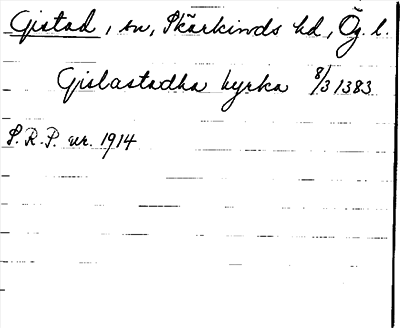 Gistad, sn, Skärkinds hd, Ög. l.
Gislastadha kyrka 8/3 1383
S.R.P. nr. 1914